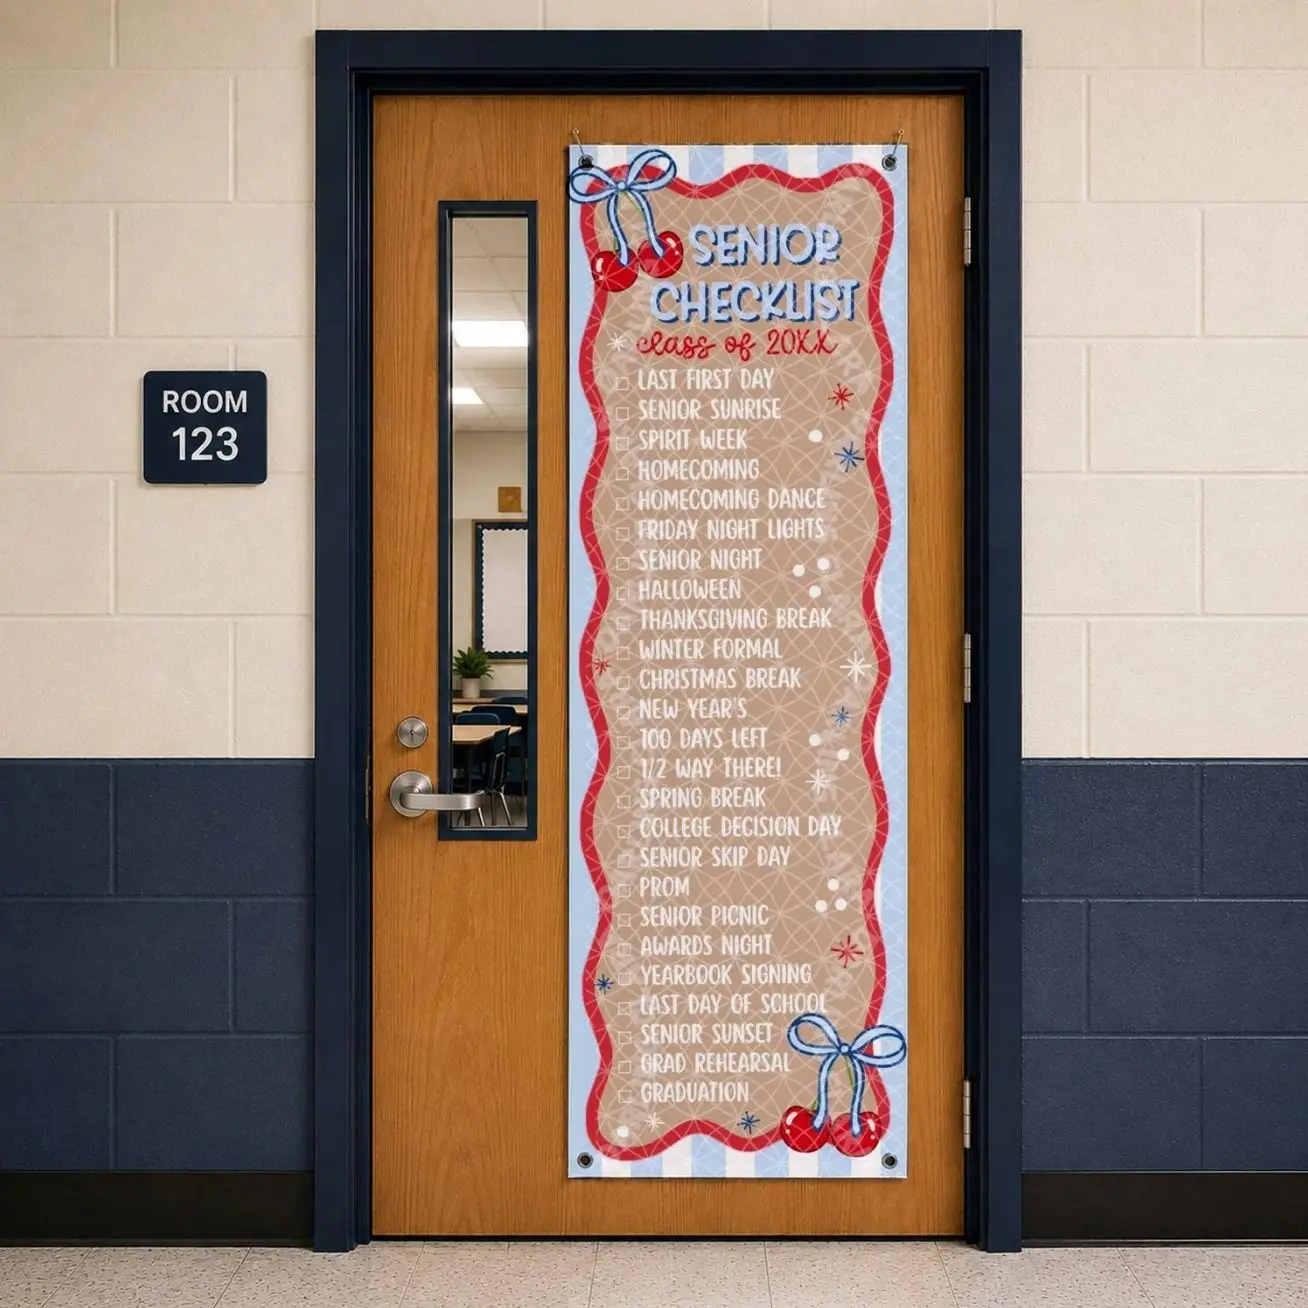 ROOM
123
SENIOR
CHECKLIST
class of 20XX
LAST FIRST DAY
SENIOR SUNRISE
SPIRIT WEEK
HOMECOMING
HOMECOMING DANCE
FRIDAY NIGHT LIGHTS
SENIOR NIGHT
HALLOWEEN
THANKSGIVING BREAK
WINTER FORMAL
CHRISTMAS BREAK
NEW YEAR'S
100 DAYS LEFT
1/2 WAY THERE!
SPRING BREAK
COLLEGE DECISION DAY
SENIOR SKIP DAY
PROM
SENIOR PICNIC
AWARDS NIGHT
YEARBOOK SIGNING
LAST DAY OF SCHOOL
SENIOR SUNSET
GRAD REHEARSAL
GRADUATION